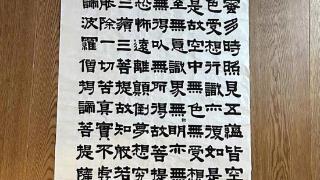 蜜多時照見五蘊皆空
色受想行識亦復如是
是故空中無色無受想
至無意識界無無明亦
無得以無所得故菩提
恐怖遠離顛倒夢想究
三藐三菩提故知般若
能除一切苦真實不虛
諦波羅僧揭諦菩提薩